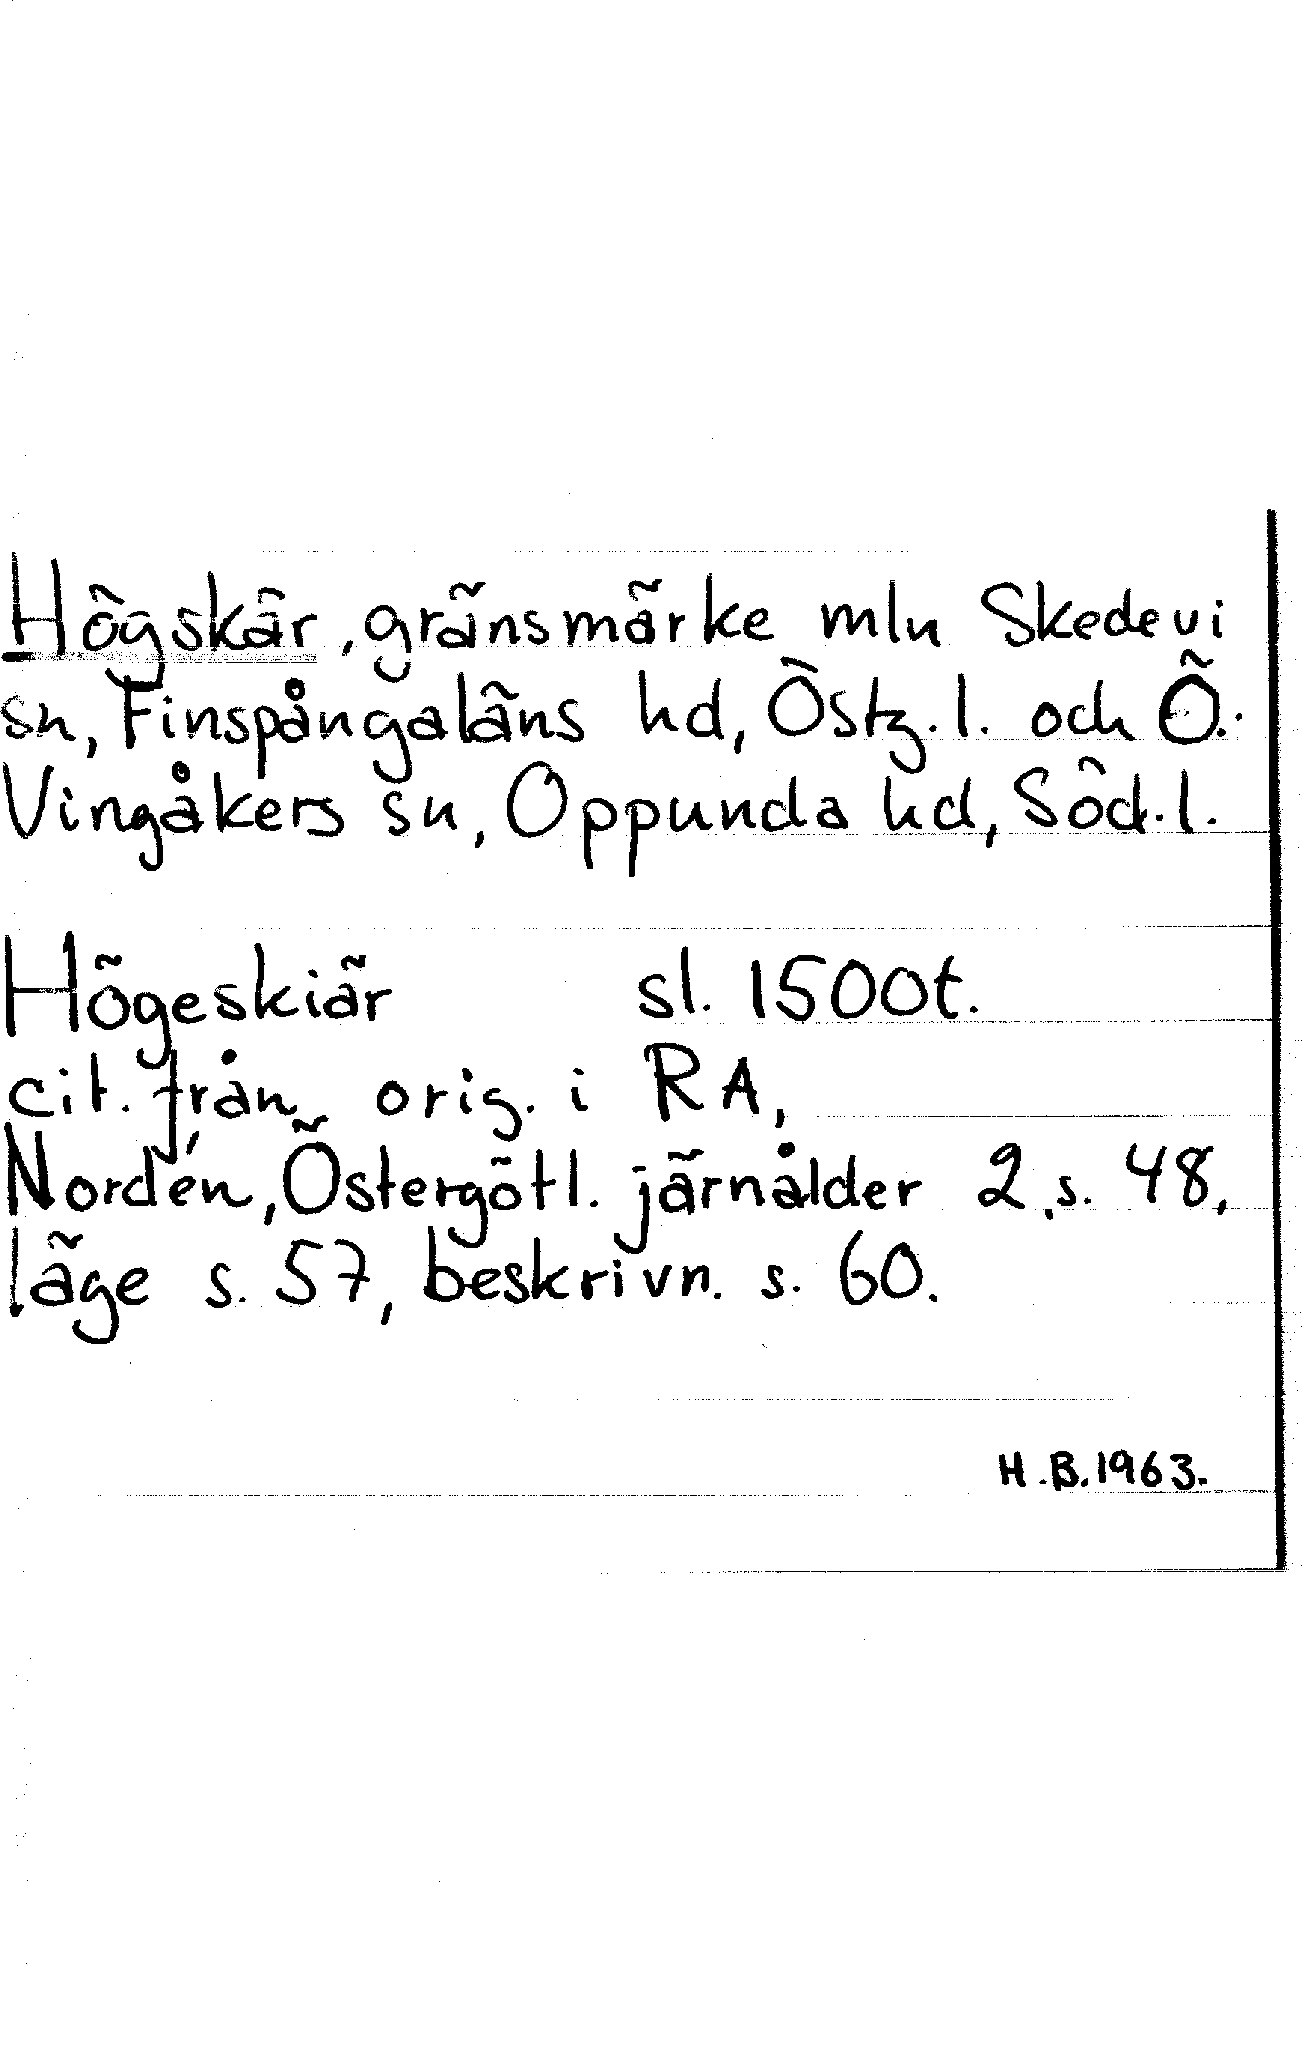 Högskär, gränsmärke mln Skedevi
sn, Finspångaläns hd, Östg.l. och Ö.
Vingåkers sn, Oppunda hd, Söd.l.
Högeskiär sl. 1500t.
cit. från orig. i RA,
Nordén, Östergötl. järnålder 2, s. 48,
läge s. 57, beskrivn. s. 60.
H.B. 1963.